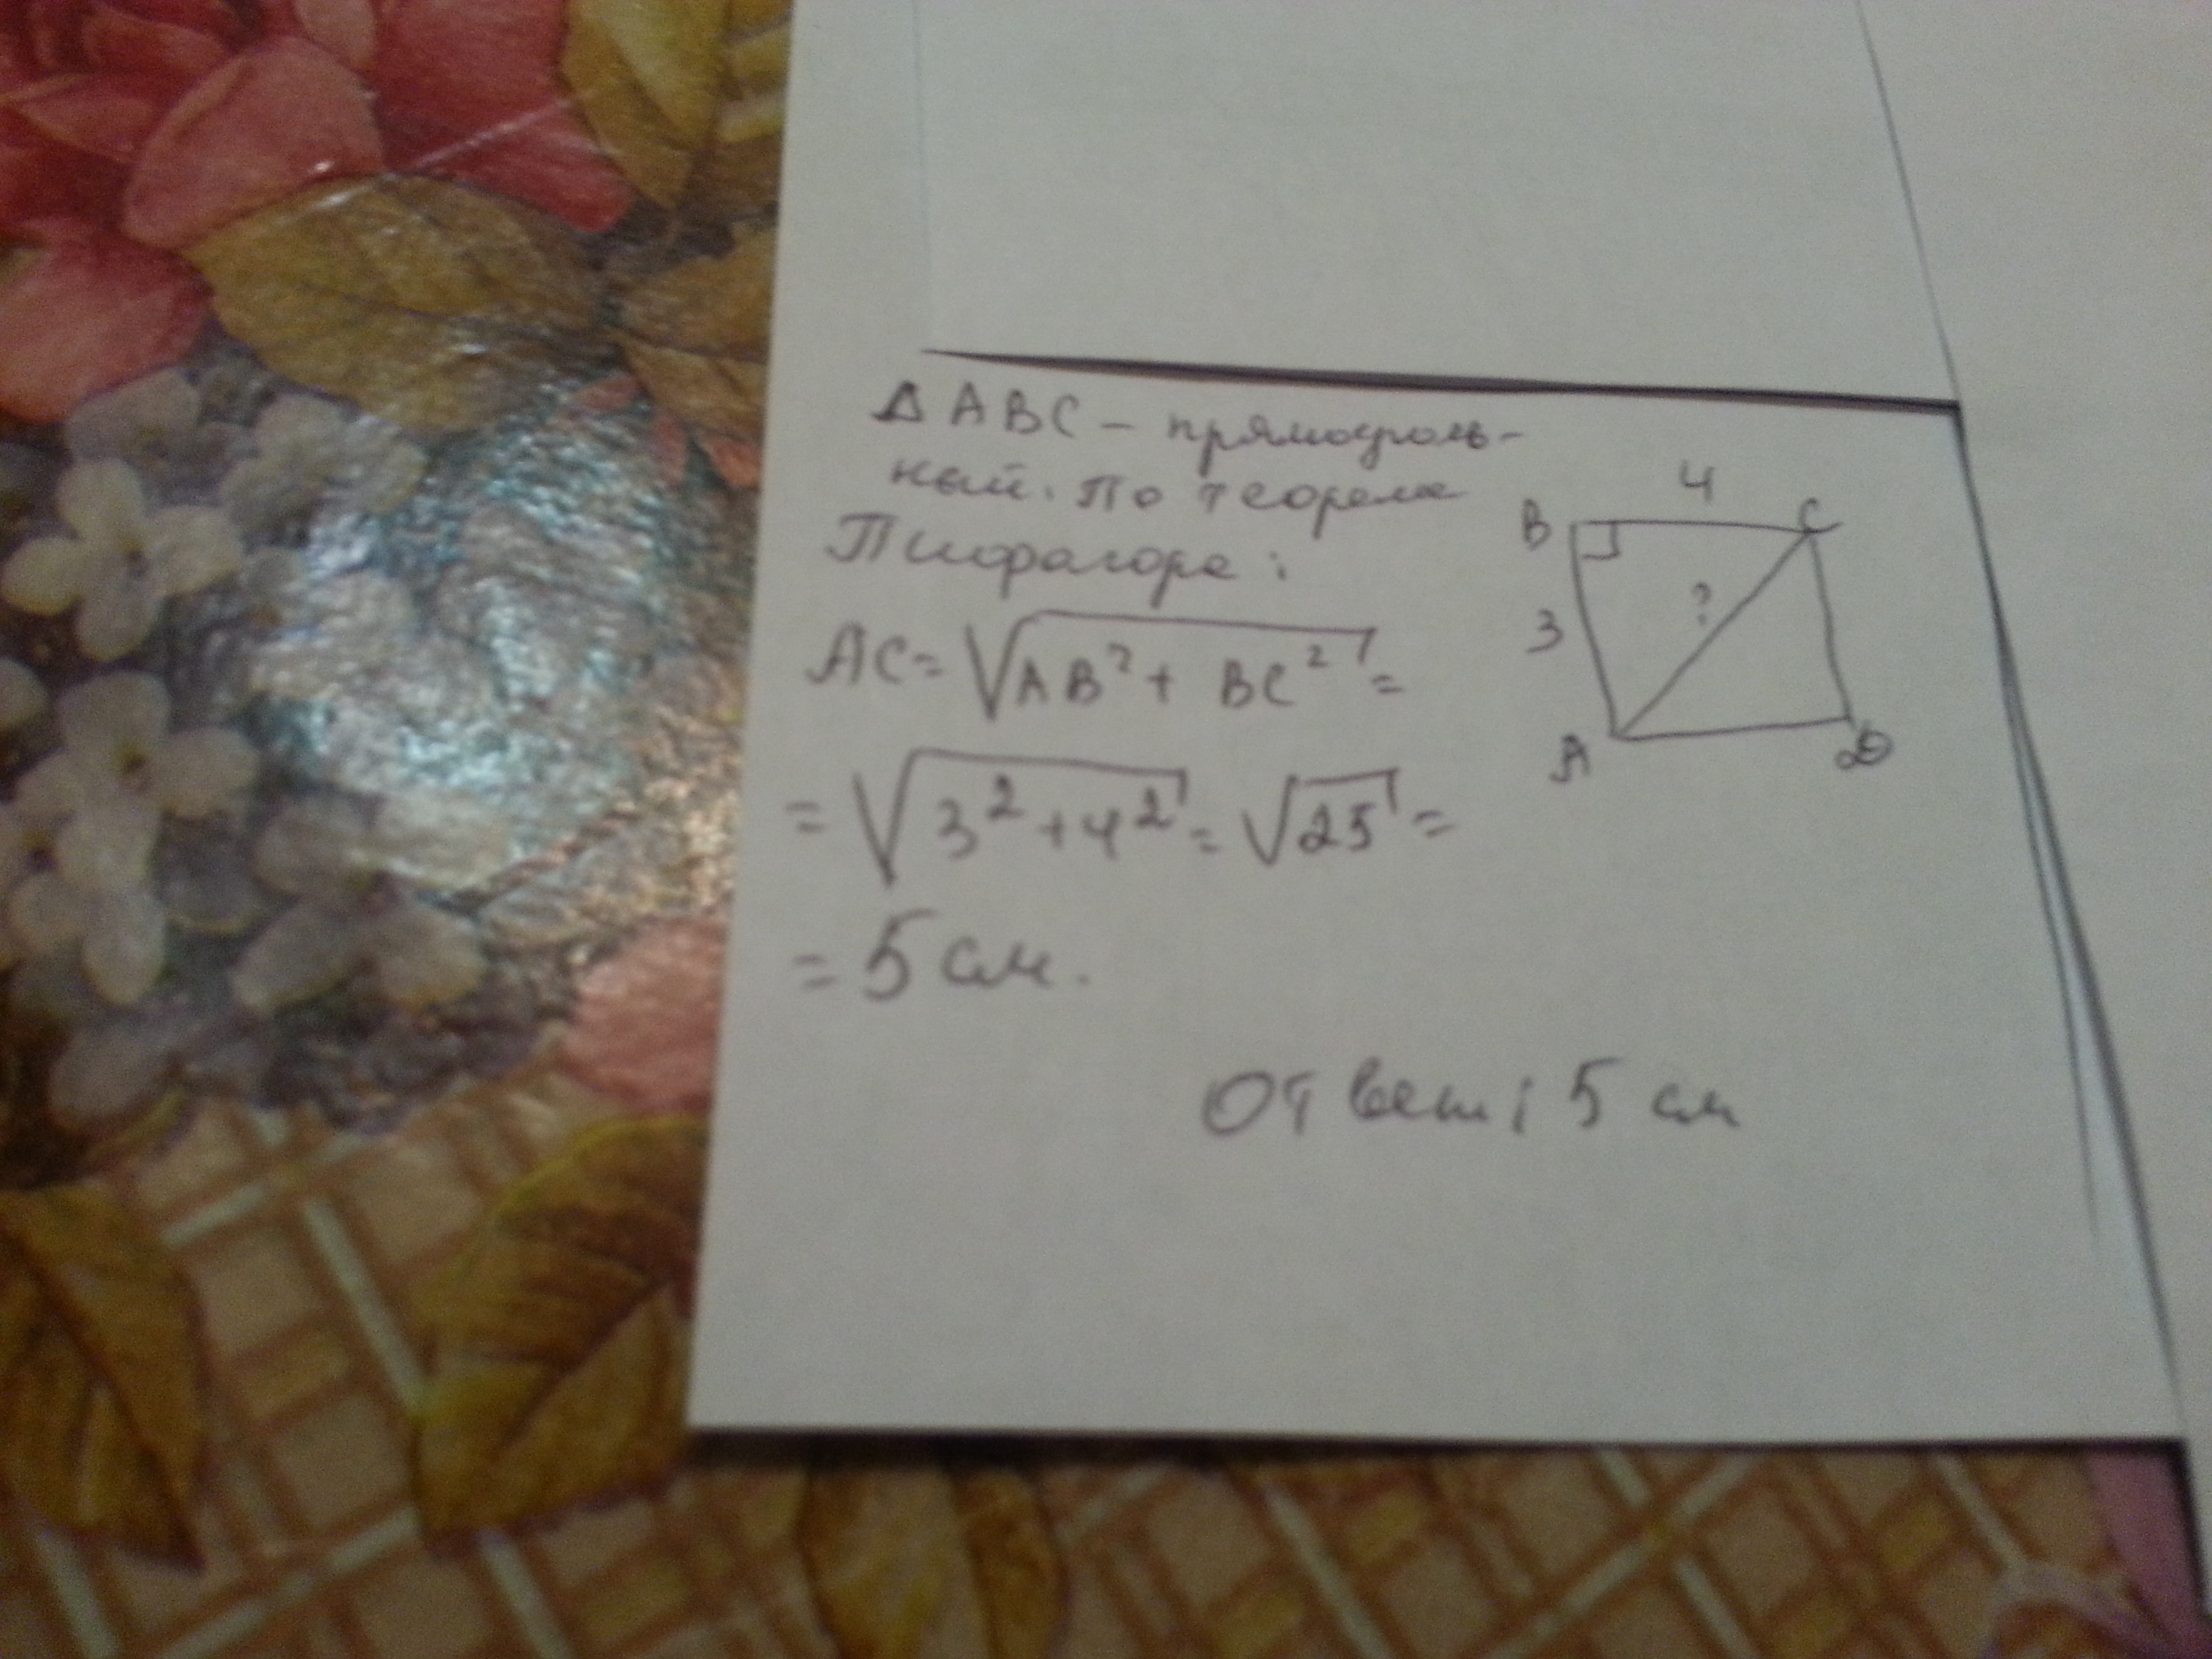 Δ ABC – прямоуголь-
ный. По теореме
Пифагора:
AC = √(AB² + BC²) =
= √(3² + 4²) = √25 =
= 5 см.
Ответ: 5 см
4
B
C
3
?
A
D